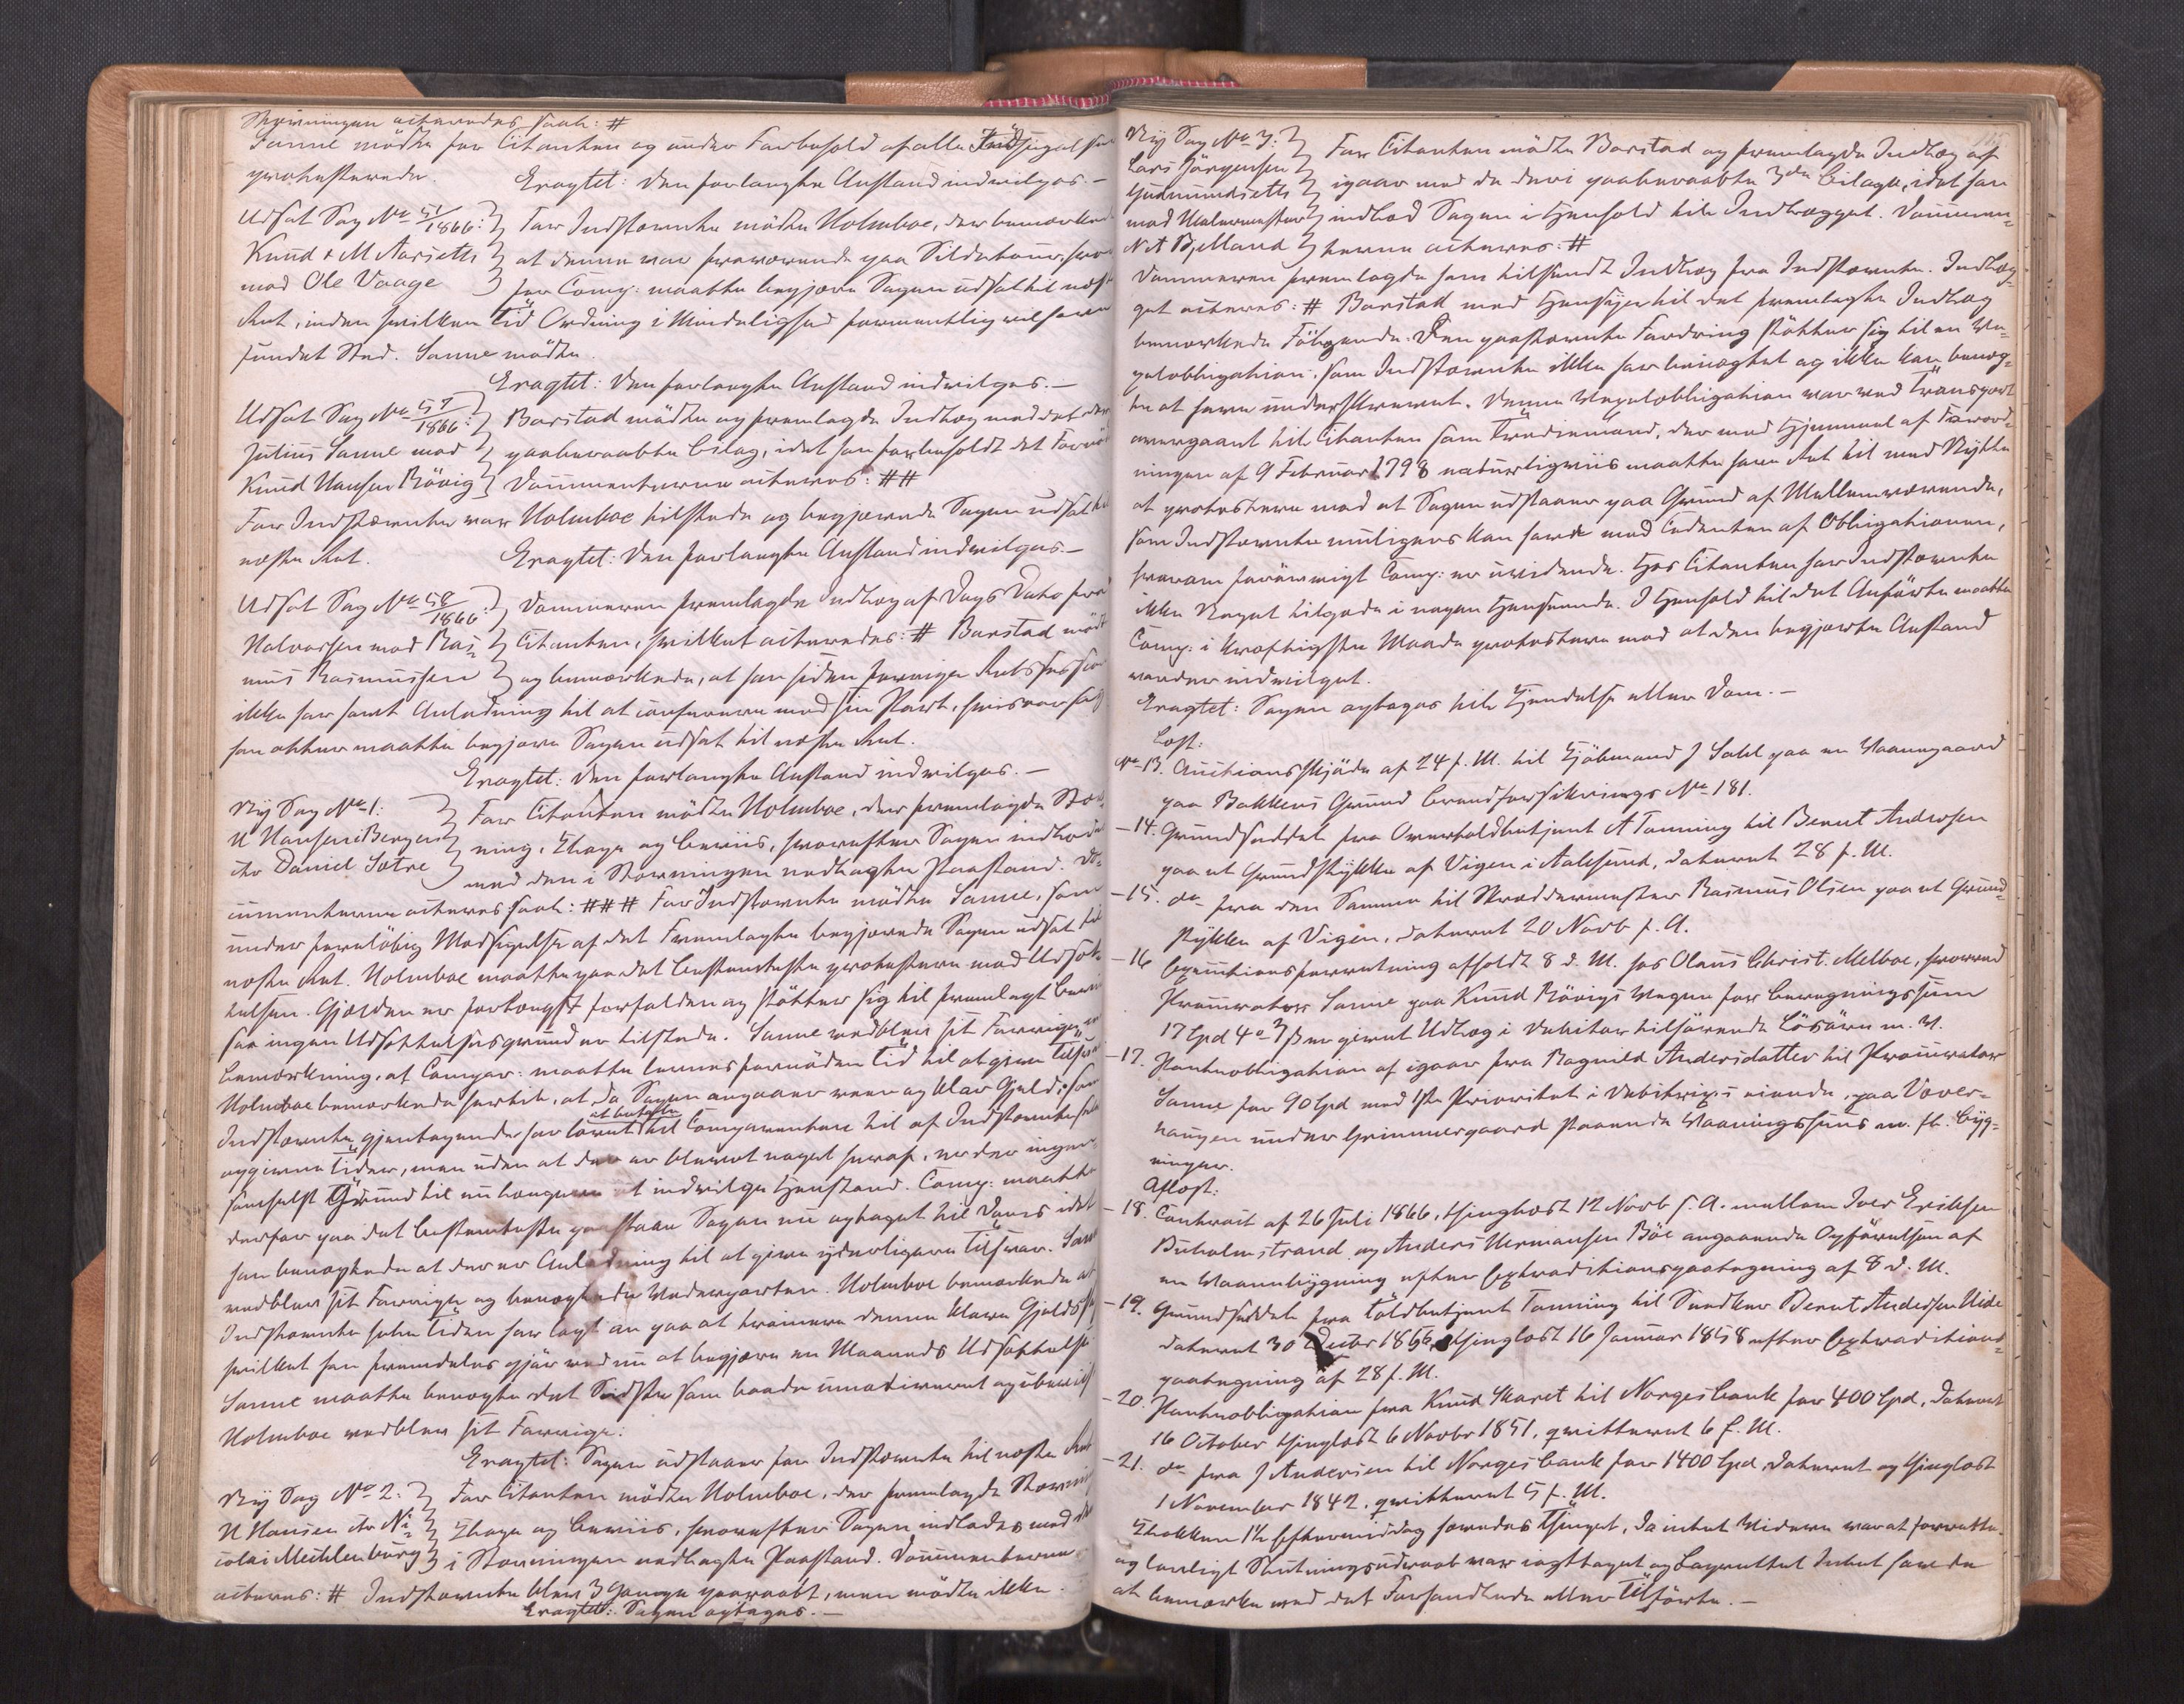 Stævningen aciteredes saal: #
Sanne mødte for Citanten og under Forbehold af alle Indsigelser
protesterede. Eragtet: Den forlangte Anstand indvilges.—
Udsat Sag No 51/1866:
Knud & M Aarseth
mod Ole Vaage
For Indstævnte mødte Holmboe, der bemærkede
at denne var fraværende paa Sildetour, hvor-
for Comp: maatte begjære Sagen udsat til næste
Ret, inden hvilken Tid Ordning i Mindelighed formentlig vil have
fundet Sted. Sanne mødte.
Eragtet: Den forlangte Anstand indvilges.—
Udsat Sag No 57/1866:
Julius Sanne mod
Knud Hansen Rövig
Barstad mødte og fremlagde Indlæg med det deri
paaberaabte Bilag, idet han forbeholdt det Fornødne
Documenterne aciteres: ##
For Indstævnte var Holmboe tilstede og begjærede Sagen udsat til
næste Ret. Eragtet: Den forlangte Anstand indvilges.—
Udsat Sag No 58/1866:
Halvorsen mod Ras-
mus Rasmussen
Dommeren fremlagde Indlæg af Dags Dato fra
Citanten, hvilket aciteredes: # Barstad mødte
og bemærkede, at han siden forrige Retssession
ikke har havt Anledning til at conferere med sin Part, hvisaarsag
han atter maatte begjære Sagen udsat til næste Ret.
Eragtet: Den forlangte Anstand indvilges.—
Ny Sag No 1:
H Hansen i Bergen
ctr Daniel Sætre
For Citanten mødte Holmboe, der fremlagde Stæv-
ning, Klage og Beviis, hvorefter Sagen indlodes
med den i Stævningen nedlagte Paastand. Do-
cumenterne aciteres saal: ### For Indstævnte mødte Sanne, som
under foreløbig Modsigelse af det Fremlagte begjærede Sagen udsat til
næste Ret. Holmboe maatte paa det Bestemteste protestere mod Udsæt-
telsen. Gjælden er forlængst forfalden og støtter sig til fremlagt Beviis
saa ingen Udsættelsesgrund er tilstede. Sanne vedblev sit Forrige
Bemærkning, at Compar: maatte levnes fornöden Tid til at give Tilsvar
Holmboe bemærkede hertil, at da Sagen angaaer reen og klar Gjæld, som
Indstævnte gjentagende har lovet at betale til Comparenten til af Indstævnte selv
opgivne Tider, men uden at der er blevet noget heraf, er der ingen-
somhelst Grund til nu længere at indvilge Henstand. Comp: maatte
derfor paa det bestemteste paastaae Sagen nu optaget til Doms idet
han benegtede at der er Anledning til at give yderligere Tilsvar. Sanne
vedblev sit Forrige og benegtede Vederparten. Holmboe bemærkede at
Indstævnte hele Tiden har lagt an paa at trainere denne klare Gjeldssag
hvilket han fremdeles gjør ved nu at begjære en Maaneds Udsættelse
Sanne maatte benegte det Sidste som baade umotiveret og ubeviist
Holmboe vedblev sit Forrige:
Eragtet: Sagen udstaaer for Indstævnte til næste Ret
Ny Sag No 2:
H Hansen ctr Ni-
colai Mecklenburg
For Citanten mødte Holmboe, der fremlagde Stævning
Klage og Beviis, hvorefter Sagen indlodes med den
i Stævningen nedlagte Paastand. Documenterne
aciteres: # Indstævnte blev 3 Gange paaraabt, men mødte ikke.
Eragtet: Sagen optages.—
Ny Sag No 3:
Lars Jörgensen
Gudmundsæth
mod Malermester
N A Bjelland
For Citanten mødte Barstad og fremlagde Indlæg af
igaar med de deri paaberaabte 3de Bilage, idet han
indlod Sagen i Henhold til Indlægget. Documen-
terne aciteres: #
Dommeren fremlagde ham tilsendt Indlæg fra Indstævnte. Indlæg-
get aciteres: # Barstad med Hensyn til det fremlagte Indlæg
bemærkede Følgende: Den paastævnte Fordring støtter sig til en Ve-
xelobligation, som Indstævnte ikke har benegtet og ikke kan beneg-
te at have underskrevet. Denne Vexelobligation var ved Transport
overgaaet til Citanten som Trediemand, der med Hjemmel af Forord-
ningen af 9 Februar 1798 naturligviis maatte have Ret til med Nytte
at protestere mod at Sagen udstaaer paa Grund af Mellemværende,
som Indstævnte muligens kan have med Cedenten af Obligationen,
hvorom forøvrigt Comp: er uvidende. Hos Citanten har Indstævnte
ikke Noget tilgode i nogen Henseende. I Henhold til det Anførte maatte
Comp: i kræftigste Maade protestere mod at den begjærte Anstand
vorder indvilget.
Eragtet: Sagen optages til Kjendelse eller Dom.—
Læst:
No 13. Auctionsskjøde af 24 f. M. til Kjøbmand J Dahl paa en Vaanegaard
paa Bakkens Grund Brandforsikrings No 181.
— 14. Grundseddel fra Overtoldbetjent A Tanning til Bernt Andersen
paa et Grundstykke af Vigen i Aalesund, dateret 28 f. M.
— 15. do fra den Samme til Skræddermester Rasmus Olsen paa et Grund-
stykke af Vigen, dateret 20 Novb f. A.
— 16 Executionsforretning afholdt 8 d. M. hos Olaus Christ. Melboe, hvorved
Procurator Sanne paa Knud Rövigs Vegne for Beregningssum
17 Spd 4 o 3 ß er givet Udlæg i Debitor tilhørende Løsøre m. V.
— 17. Panteobligation af igaar fra Ragnild Andersdatter til Procurator
Sanne for 90 Spd med 1ste Prioritet i Debitrix's eiende, paa Vover-
haugen under Grimmergaard staaende Vaaningshuus m. fl. Byg-
ninger.
Aflæst:
— 18. Contract af 26 Juli 1866, thinglæst 12 Novb s. A. mellem Iver Eriksen
Buholmstrand og Anders Hermansen Böe angaaende Opførelsen af
en Vaanebygning efter Extraditionspaategning af 8 d. M.
— 19. Grundseddel fra Toldbetjent Tanning til Snedker Bernt Andersen Nide
dateret 30 Decbr 1856, thinglæst 16 Januar 1858 efter Extraditions-
paategning af 28 f. M.
— 20. Panteobligation fra Knud Skaret til Norges Bank for 400 Spd, dateret
16 October thinglæst 6 Novbr 1851, qvitteret 6 f. M.
— 21. do fra J Andersen til Norges Bank for 1400 Spd, dateret og thinglæst
1 November 1842, qvitteret 5 f. M.
Klokken 1½ Eftermiddag hævedes Thinget, da intet Videre var at forrette
og lovligt Slutningsudraab var iagttaget og Lagrettet Intet havde
at bemærke ved det Forhandlede eller Tilførte.—